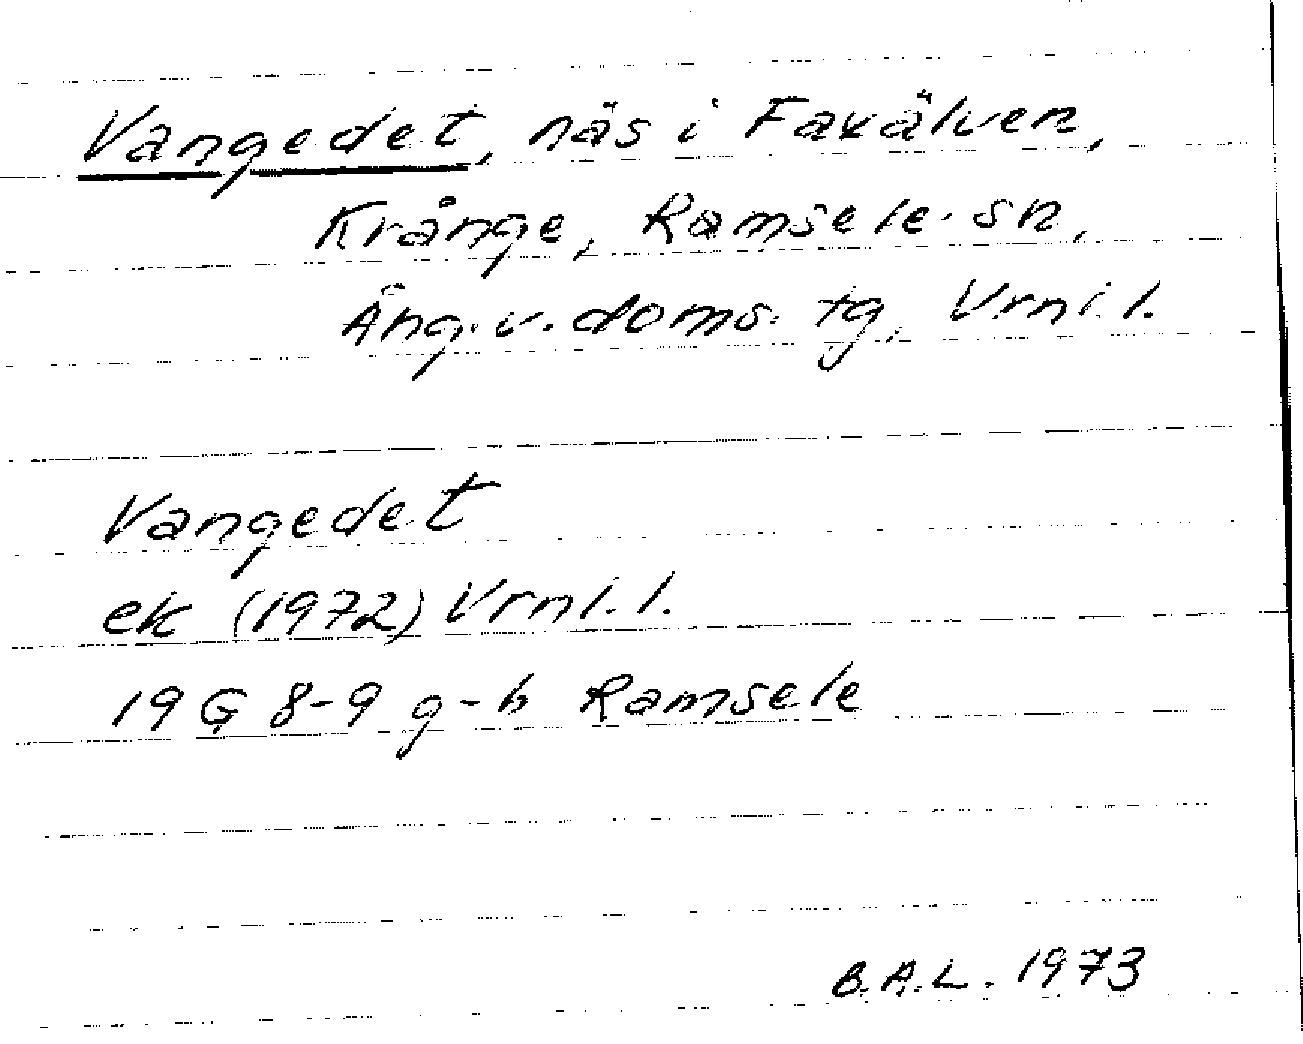 Vangedet, näs i Faxälven,
Krånge, Ramsele sn,
Ång. v. doms. tg, Vrnl. l.
Vangedet
ek (1972) Vrnl. l.
19 G 8-9 g-h Ramsele
B.A.L. 1973